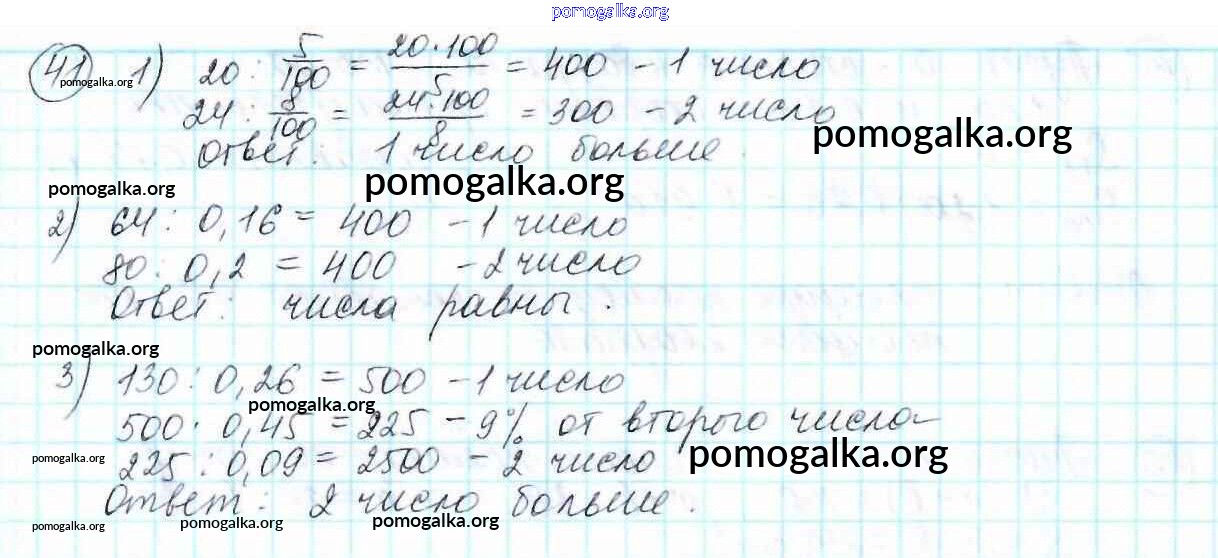 pomogalka.org
41 1) 20 : 5/100 = 20·100/5 = 400 – 1 число
pomogalka.org
24 : 8/100 = 24·100/8 = 300 – 2 число
pomogalka.org
Ответ: 1 число больше.
pomogalka.org
pomogalka.org
2) 64 : 0,16 = 400 – 1 число
80 : 0,2 = 400 – 2 число
Ответ: числа равны.
pomogalka.org
3) 130 : 0,26 = 500 – 1 число
pomogalka.org
500 · 0,45 = 225 – 9% от второго числа
225 : 0,09 = 2500 – 2 число
pomogalka.org
pomogalka.org
Ответ: 2 число больше.
pomogalka.org
pomogalka.org
pomogalka.org